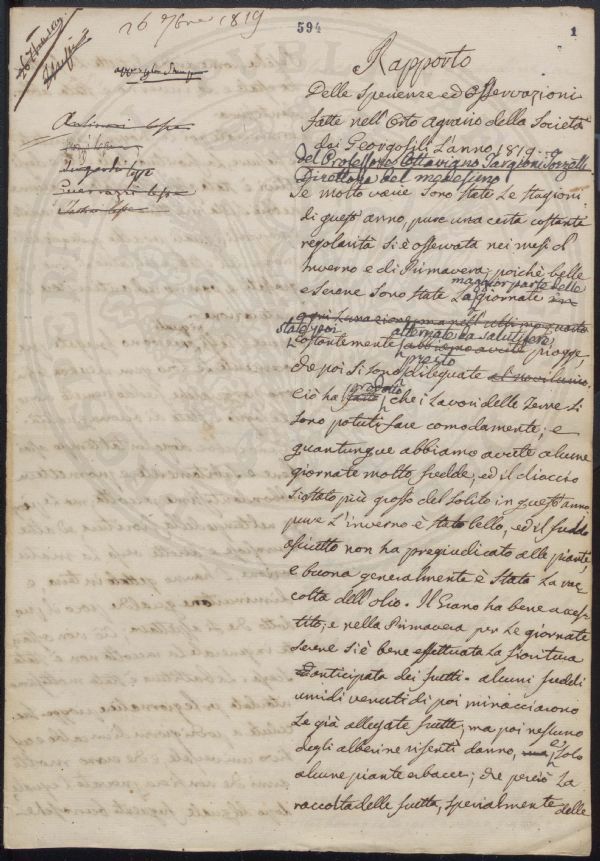 26 7bre 1819
594
1
Rapporto
Delle sperienze ed Osservazioni
fatte nell'Orto agrario della Società
dei Georgofili l'anno 1819.
del Professore Ottaviano Targioni Tozzetti
Direttore del medesimo
Se molto varie sono state le stagioni
di quest'anno, pure una certa costante
regolarità si è osservata nei mesi d'
Inverno e di Primavera; poichè belle
maggior parte delle
e serene sono state la giornate in
ogni lunazione, ma nell'ultimo quarto
state poi alternate da salutifere
costantemente abbiamo avute piogge,
presto
che poi si sono dileguate al novilunio.
prodotto
Ciò ha fatto che i lavori delle Terre si
sono potuti fare comodamente; e
quantunque abbiamo avute alcune
giornate molto fredde, ed il diaccio
sia stato più grosso del solito in quest'anno,
pure l'inverno è stato bello, ed il freddo
asciutto non ha pregiudicato alle piante,
e buona generalmente è stata la rac-
colta dell'olio. Il Grano ha bene acces-
tito; e nella Primavera per le giornate
serene si è bene effettuata la fioritura
anticipata dei frutti. alcuni freddi
umidi venuti di poi minacciarono
le già allegate frutte; ma poi nessuno
degli alberi ne risentì danno, ma e solo
alcune piante erbacee; che perciò la
raccolta delle frutta, specialmente delle